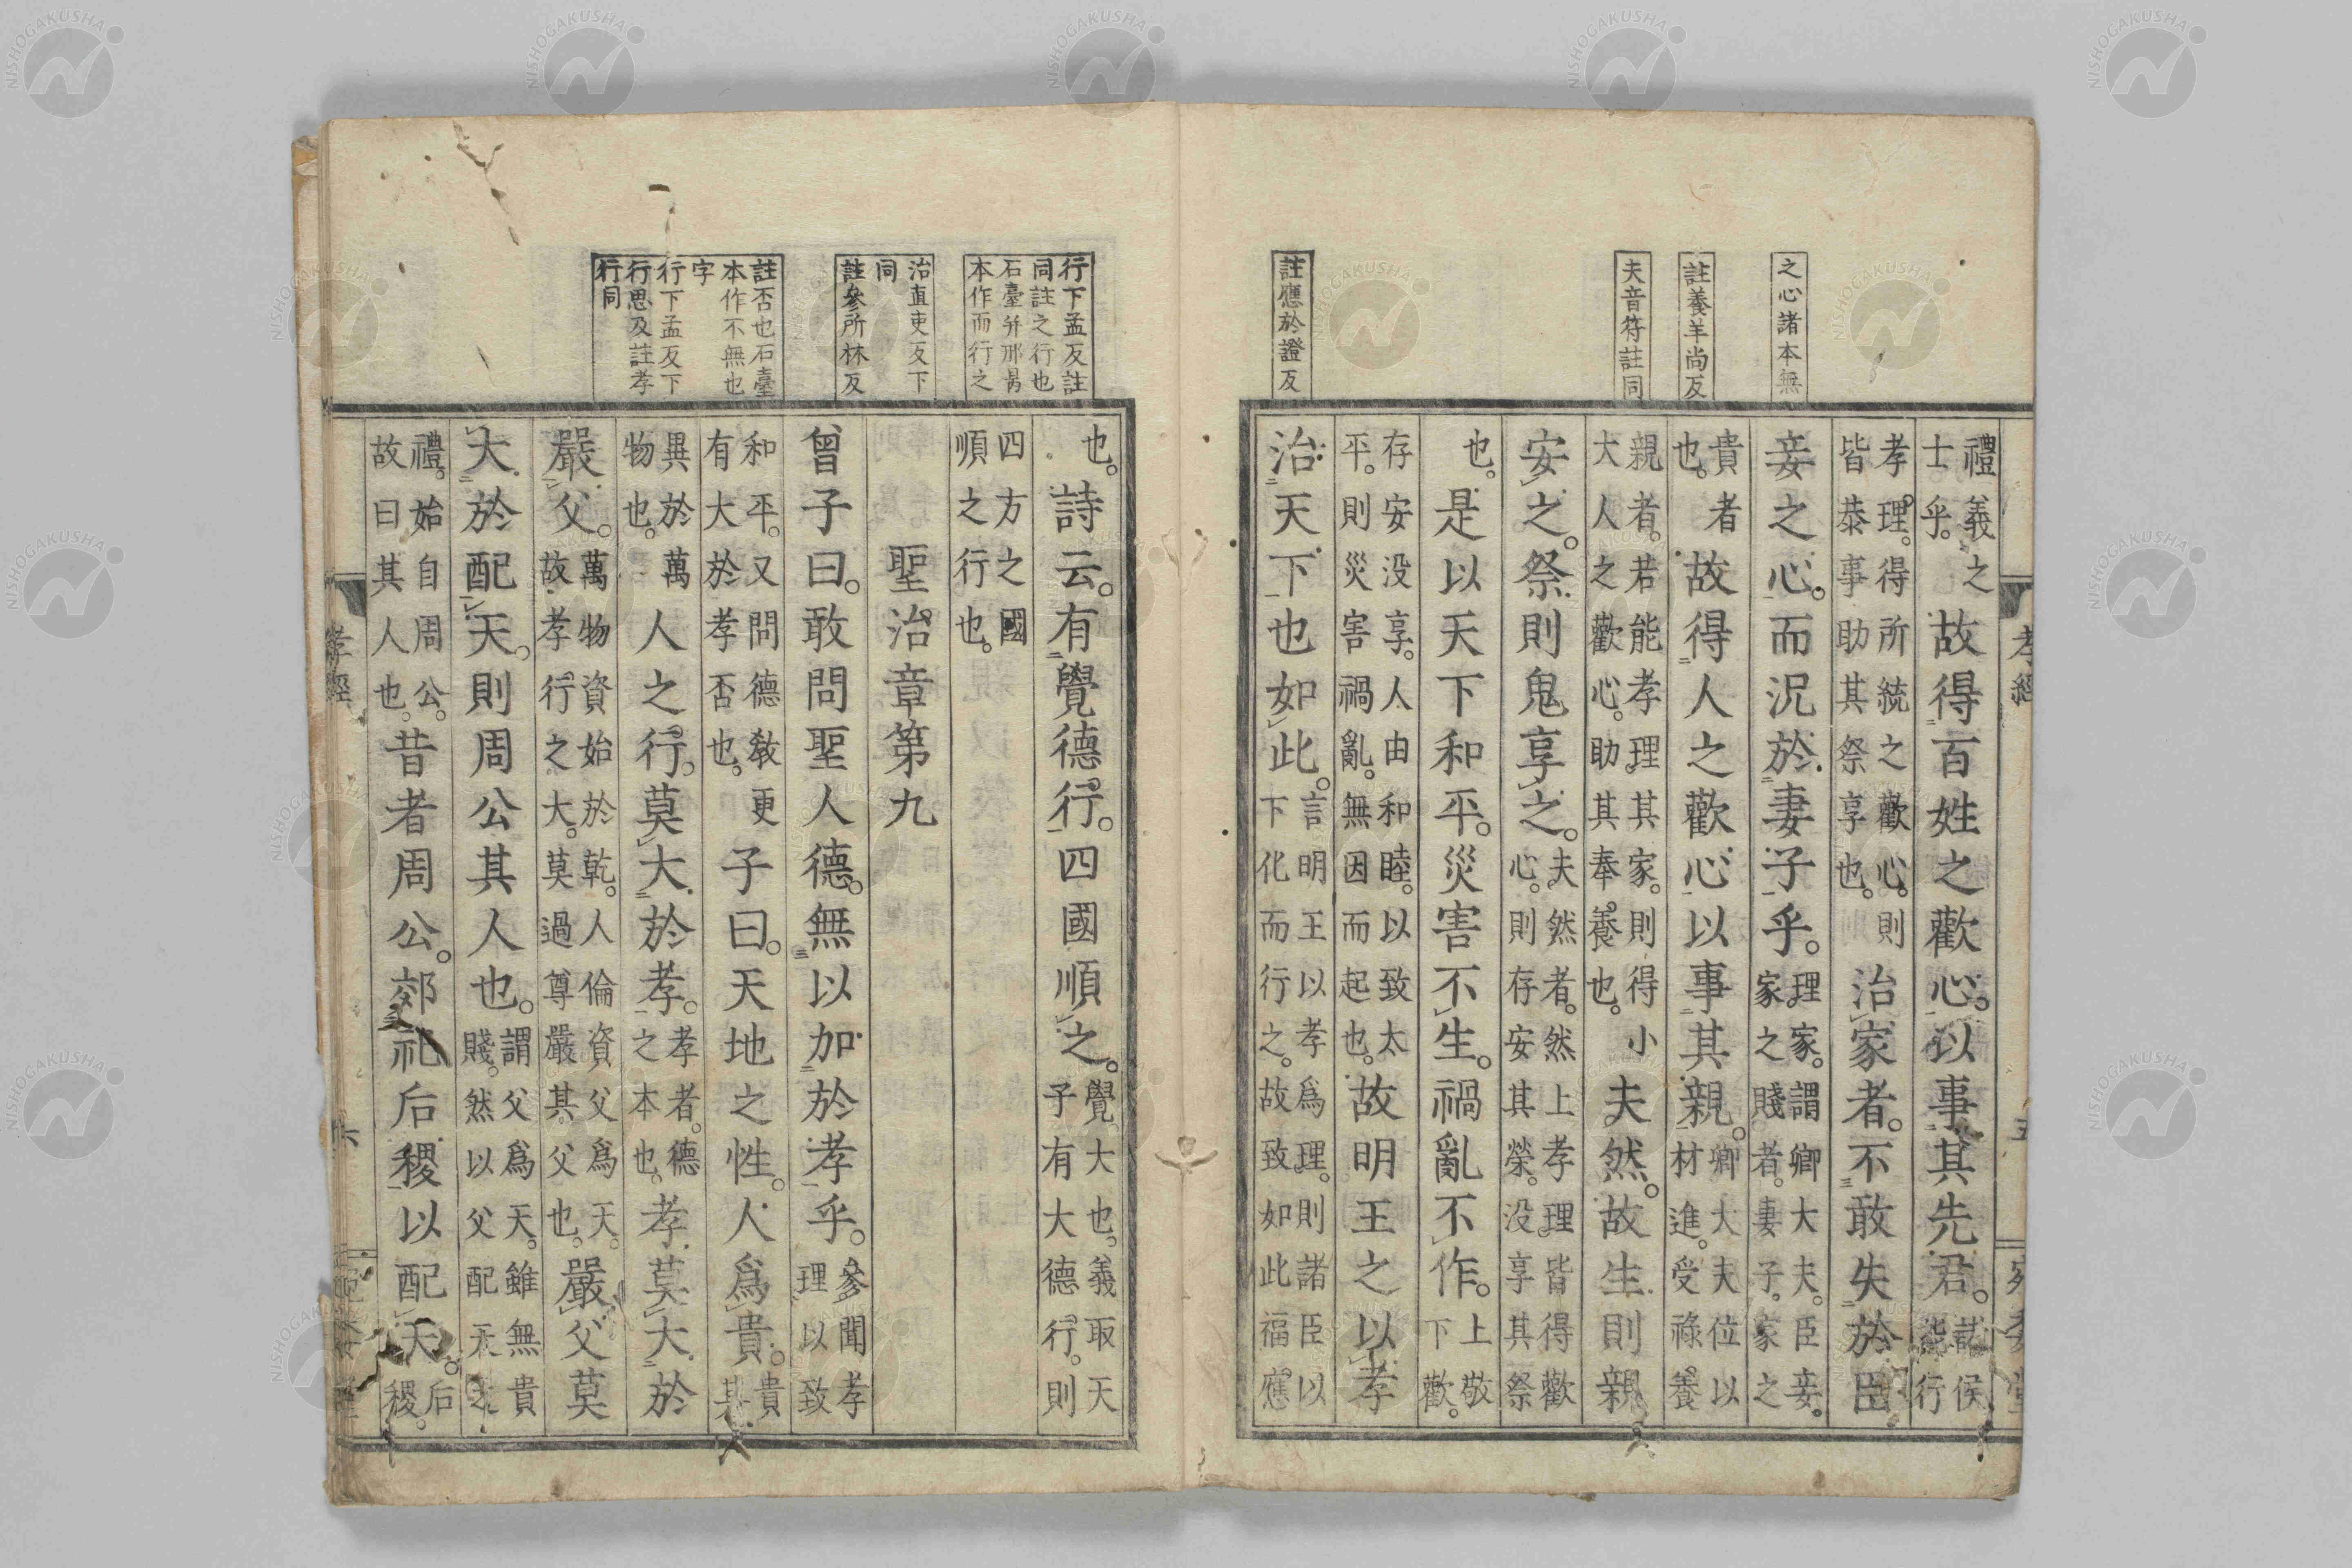 之心諸本無
註養羊尚反
夫音符註同
註應於證反
禮義之士乎。故得百姓之歡心。以事其先君。諸侯能行
孝理。得所統之歡心。則皆恭事助其祭享也。治家者。不敢失於臣
妾之心。而況於妻子乎。理家。謂卿大夫。臣妾。家之賤者。妻子。家之
貴者也。故得人之歡心。以事其親。卿大夫位以材進。受祿養
親者。若能孝理其家。則得小大人之歡心。助其奉養也。夫然。故生則親
安之。祭則鬼享之。夫然者。然上孝理皆得歡心。則存安其榮。没享其祭
也。是以天下和平。災害不生。禍亂不作。上敬下歡。
存安没享。人由和睦。以致太平。則災害禍亂。無因而起也。故明王之以孝
治天下也如此。言明王以孝爲理。則諸臣以下化而行之。故致如此福應
孝經
行下孟反註
同註之行也
石臺并邢昺
本作而行之
治直吏反下
同
註參所林反
註否也石臺
本作不無也
字
行下孟反下
行思及註孝
行同
也。詩云。有覺德行。四國順之。覺。大也。義取天子有大德行。則
四方之國順之行也。
聖治章第九
曾子曰。敢問聖人德。無以加於孝乎。參聞孝理以致
和平。又問德教更有大於孝否也。子曰。天地之性。人爲貴。貴其
異於萬物也。人之行。莫大於孝。孝者。德之本也。孝莫大於
嚴父。萬物資始於乾。人倫資父爲天。故孝行之大。莫過尊嚴其父也。嚴父莫
大於配天。則周公其人也。謂父爲天。雖無貴賤。然以父配天之
禮。始自周公。故曰其人也。昔者周公。郊祀后稷以配天。后稷。
孝經
六